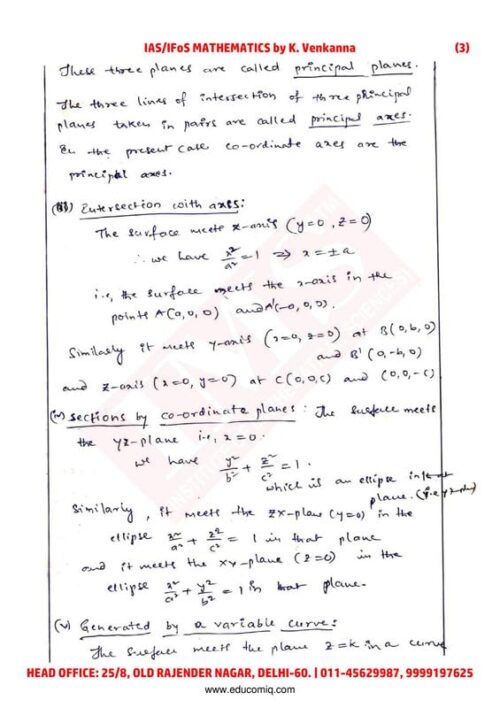 IAS/IFoS MATHEMATICS by K. Venkanna (3)
These three planes are called principal planes.
The three lines of intersection of three principal
planes taken in pairs are called principal axes.
In the present case co-ordinate axes are the
principal axes.
(iii) Intersection with axes:
The surface meets x-axis (y=0, z=0)
∴ we have x²/a² = 1 ⇒ x = ±a
i.e, the surface meets the x-axis in the
points A(a, 0, 0) and A'(-a, 0, 0).
Similarly it meets y-axis (x=0, z=0) at B(0, b, 0)
and B'(0, -b, 0)
and z-axis (x=0, y=0) at C(0, 0, c) and (0, 0, -c)
(iv) Sections by co-ordinate planes: The surface meets
the yz-plane i.e, x=0.
we have y²/b² + z²/c² = 1.
which is an ellipse in that
plane. (i.e yz-plane)
Similarly, it meets the zx-plane (y=0) in the
ellipse x²/a² + z²/c² = 1 in that plane
and it meets the xy-plane (z=0) in the
ellipse x²/a² + y²/b² = 1 in that plane.
(v) Generated by a variable curve:
The surface meets the plane z=k in a curve
HEAD OFFICE: 25/8, OLD RAJENDER NAGAR, DELHI-60. | 011-45629987, 9999197625
www.educomiq.com